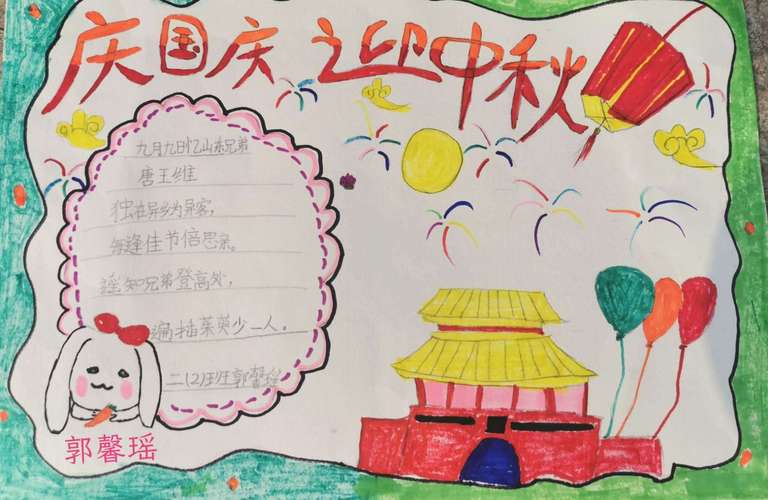 庆国庆 迎中秋
九月九日忆山东兄弟
唐王维
独在异乡为异客,
每逢佳节倍思亲。
遥知兄弟登高处,
遍插茱萸少一人。
二(2)班郭馨瑶
郭馨瑶